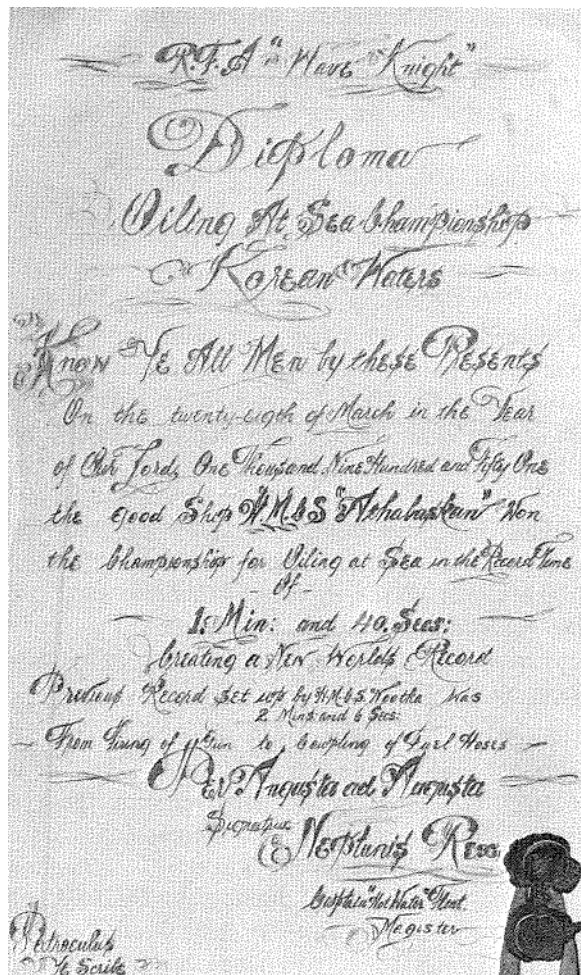 R.F.A "Wave Knight"
Diploma
Oiling At Sea Championship
Korean Waters
Know Ye All Men by these Presents
On the twenty-eigth of March in the Year
of Our Lord, One Thousand Nine Hundred and Fifty One
the good Ship "H.M.C.S "Athabaskan" Won
the Championship for Oiling at Sea in the Record Time
- Of -
1. Min: and 40. Secs:
Creating a New Worlds Record
Previous Record set up by H.M.C.S. Nootka was
2 Mins and 6 Secs:
From Firing of Gun to Coupling of Fuel Hoses
Per Angusta ad Augusta
Signature
Neptunis Rex
Captain "Hot Water" Flint.
Magister
Petroculus
Ye Scribe